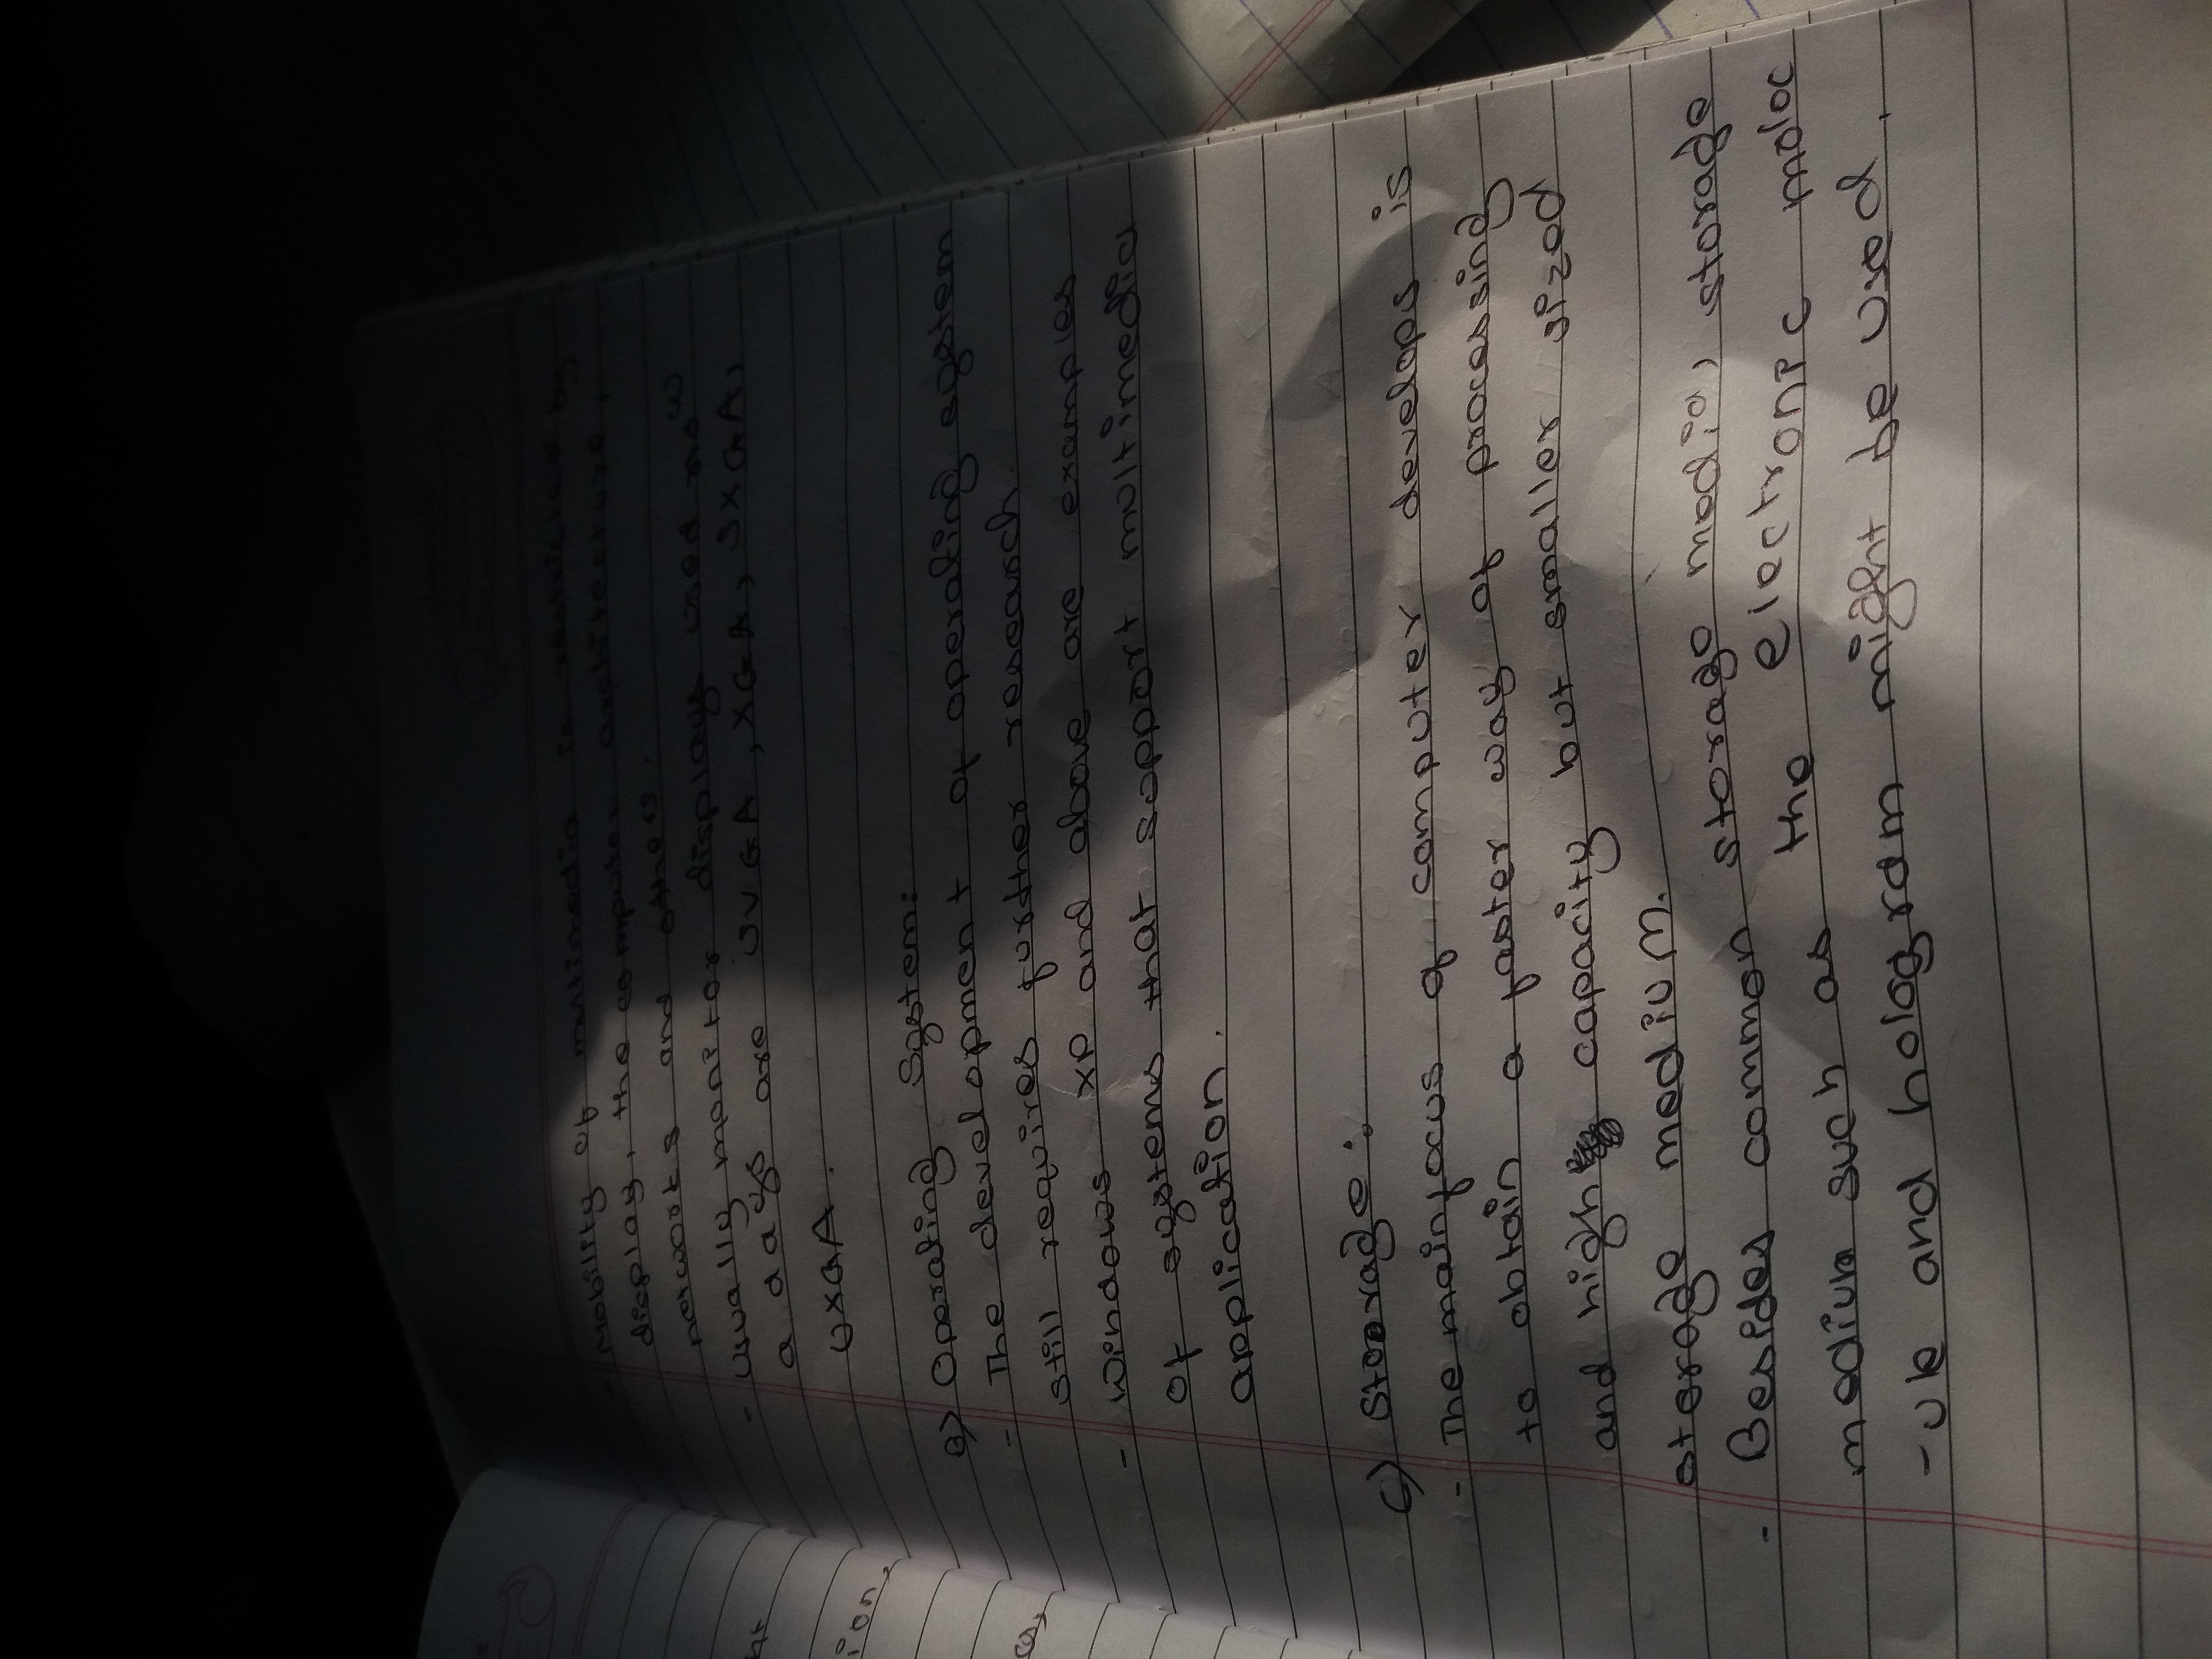 - Mobility of multimedia is restricted by
display, the computer architecture,
networks and others.
- Usually monitor displays used now
a days are SVGA, XGA, SXGA,
UXGA.
B) Operating System:
- The development of operating system
still requires further research.
- Windows XP and above are examples
of systems that support multimedia
application.
C) Storage:
- The mainfocus of computer develops is
to obtain a faster way of processing
and high capacity but smaller sized
storage medium.
- Besides common storage media, storage
medium such as the electronic molec
-ule and hologram might be used.
ion,